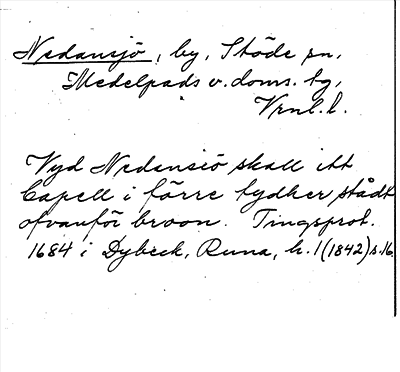 Nedansjö, by, Stöde sn,
Medelpads v. doms. tg,
Vrnl. l.
Vyd Nedensiö skall itt
Capell i förre tydher stådt
ofvanför broon. Tingsprot.
1684 i Dybeck, Runa, h. 1 (1842) s. 16.